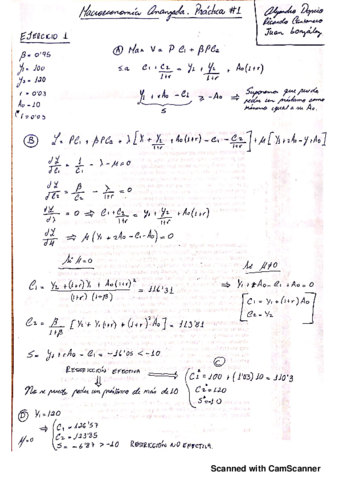 Macroeconomía Avanzada. Práctica #1
Alejandro
Ricardo
Juan González
EJERCICIO 1
β = 0'95
Y₁ = 100
Y₂ = 120
r = 0'03
A₀ = 10
i = 0'03
(A) Max V = P C₁ + βPC₂
s.a C₁ + C₂/1+r = Y₁ + Y₂/1+r + A₀(1+r)
Y₁ + rA₀ - C₁ ≥ -A₀ ⇒ Suponemos que puede pedir un préstamo como máximo igual a su A₀.
S
(B) L = PC₁ + βPC₂ + λ[Y₁ + Y₂/1+r + A₀(1+r) - C₁ - C₂/1+r] + μ[Y₁ + 2A₀ -
dL/dC₁ = 1/C₁ - λ - μ = 0
dL/dC₂ = β/C₂ - λ/1+r = 0
dL/dλ = 0 ⇒ C₁ + C₂/1+r = Y₁ + Y₂/1+r + A₀(1+r)
dL/dμ ⇒ μ(Y₁ + 2A₀ - C₁ - A₀) = 0
Si μ = 0
Si μ ≠ 0
C₁ = Y₂ + (1+r)Y₁ + A₀(1+r)² / (1+r)(1+β) = 116'31
⇒ Y₁ + 2A₀ - C₁ + A₀ = 0
[C₁ = Y₁ + (1+r)A₀
C₂ = Y₂]
C₂ = β/1+β [Y₂ + Y₁(1+r) + (1+r)²A₀] = 113'81
S = Y₁ + rA₀ - C₁ = -16'05 < -10
(C)
RESTRICCIÓN EFECTIVA
⇒ {C₁* = 100 + (1'03)10 = 110'3
C₂* = 120
S* = -10
No se puede pedir un préstamo de más de 10
(D) Y₁ = 120
μ = 0
⇒ {C₁ = 126'57
C₂ = 123'85
S = -6'87 > -10 RESTRICCIÓN NO EFECTIVA.
Scanned with CamScanner